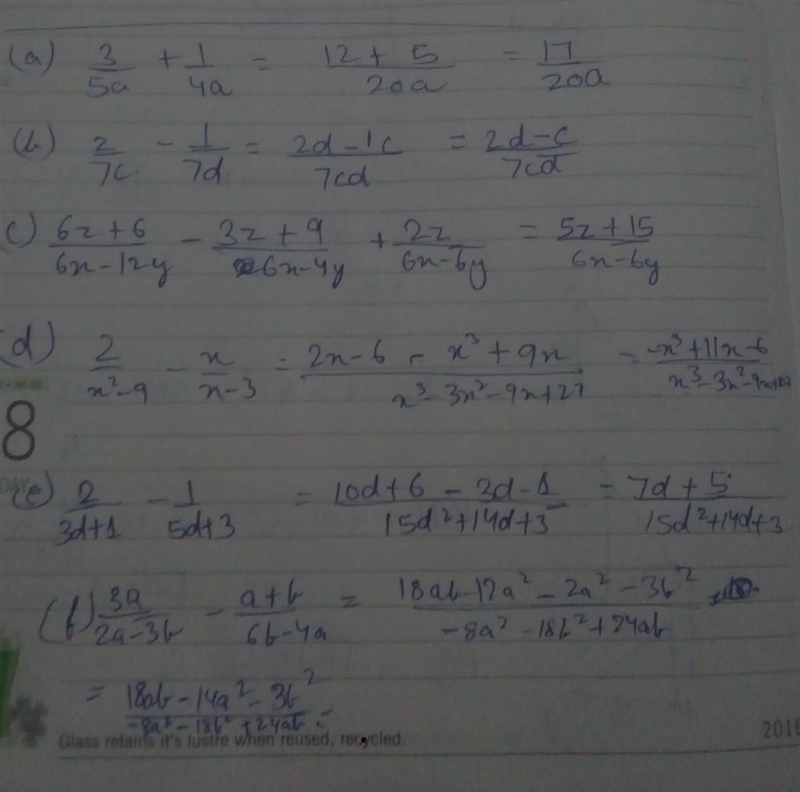 (a) 3/5a + 1/4a = 12 + 5/20a = 17/20a
(b) 2/7c - 1/7d = 2d - 1c/7cd = 2d - c/7cd
(c) 6z + 6/6x - 12y - 3z + 9/6x - 4y + 2z/6x - 6y = 5z + 15/6x - 6y
(d) 2/x² - 9 - x/x - 3 = 2x - 6 - x³ + 9x/x³ - 3x² - 9x + 27 = -x³ + 11x - 6/x³ - 3x² - 9x + 27
8
DAY
(e) 2/3d + 1 - 1/5d + 3 = 10d + 6 - 3d - 1/15d² + 14d + 3 = 7d + 5/15d² + 14d + 3
(f) 3a/2a - 3b - a + b/6b - 4a = 18ab - 12a² - 2a² - 3b²/-8a² - 18b² + 24ab
= 18ab - 14a² - 3b²/-8a² - 18b² + 24ab
Glass retains it's lustre when reused, recycled.
2016